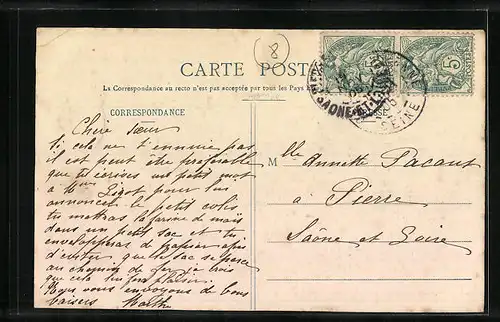 8
CARTE POST
La Correspondance au recto n'est pas acceptée par tous les Pays
CORRESPONDANCE
Chère sœur
Si cela ne t'ennuie pas
il est peut être préférable
que tu écrives un petit mot
à Mme pour lui
annoncer le petit colis
tu mettras la farine de maïs
dans un petit sac et tu
envelopperas de papier afin
d'éviter que le sac se perce
au chemin de fer je crois
que cela lui fera plaisir
Nous vous envoyons de bons
baisers Marthe
SAONE-ET-
SEINE
5
Mlle Annette Pacaut
à Pierre
Saône et Loire